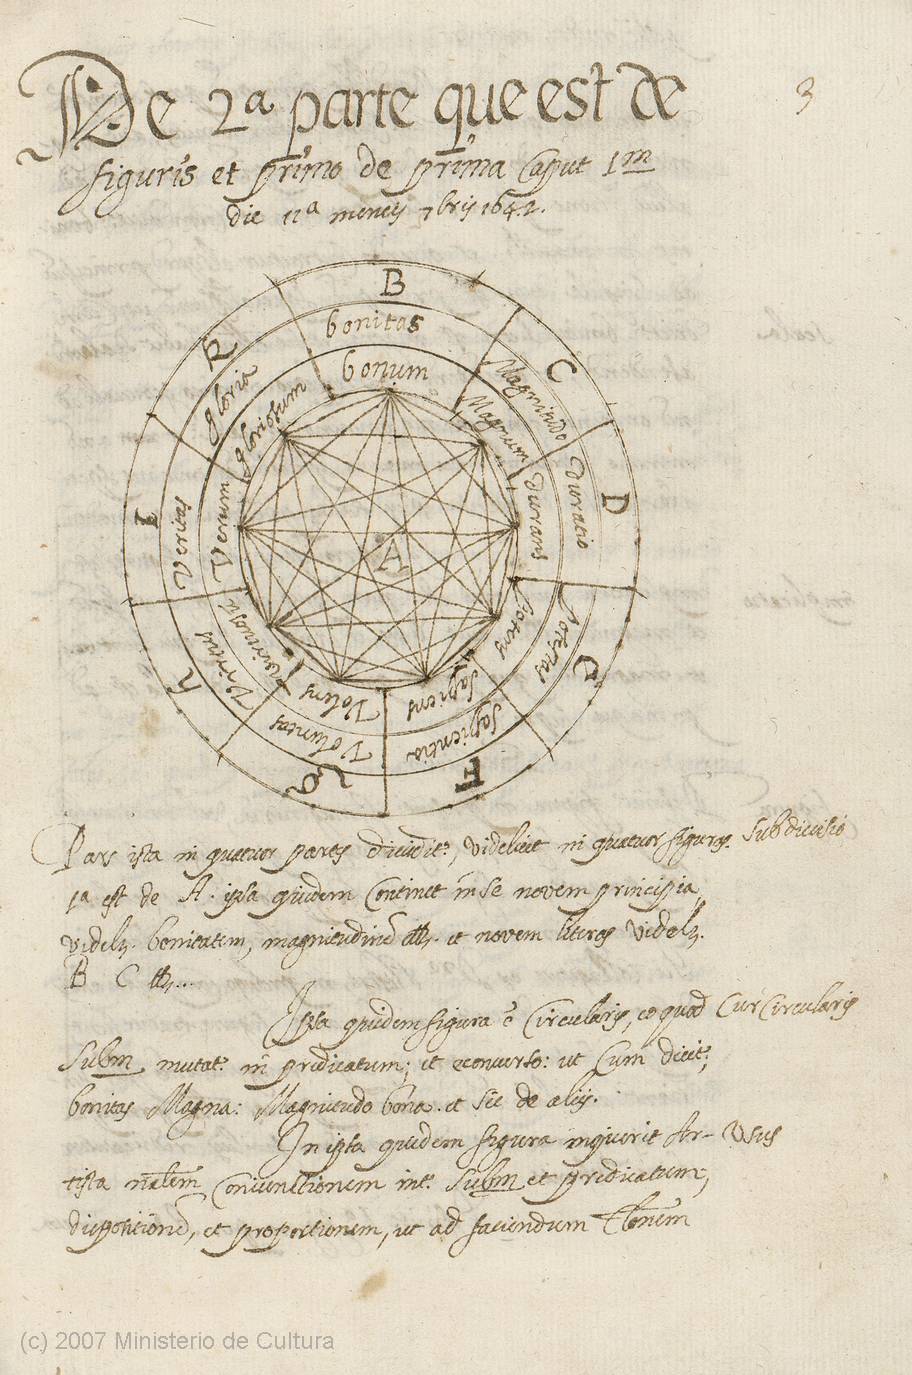 De 2ª parte que est de
figuris et primo de prima Caput 1m
die 11ª mencij 7bris 1642.
3
B
bonitas
bonum
C
Magnitudo
Magnum
D
Duracio
Durans
E
Potestas
Potens
F
Sapientia
Sapiens
G
Voluntas
Volens
H
Virtus
Virtuosum
I
Veritas
Verum
K
gloria
gloriosum
A
Pars ista in quatuor partes diuidit², videliceit in quatuor figuras. Subdiuisio
1ª est de A. ipsa quidem Continet in se novem principia,
videlz. bonitatem, magnitudinē &. et novem literas videlz.
B C &...
Ipsa quidem figura ē Circularis, eo quod Cur Circularis
Subm mutat² in predicatum; et econuerso: ut Cum dicit²;
bonitas Magna: Magnitudo bona. et sic de alijs.
In ista quidem figura inquirit Ar- Usus
tista nālem Coniunctionem int² Subm et predicatum;
dispositionē, et proportionem, ut ad faciendum
(c) 2007 Ministerio de Cultura